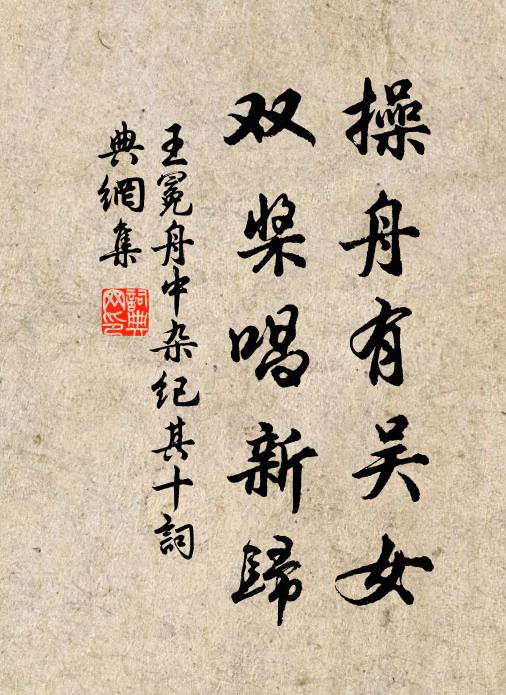 操舟有吴女
双桨唱新歸
王冕舟中杂纪其十詞
典網集
詞典網印